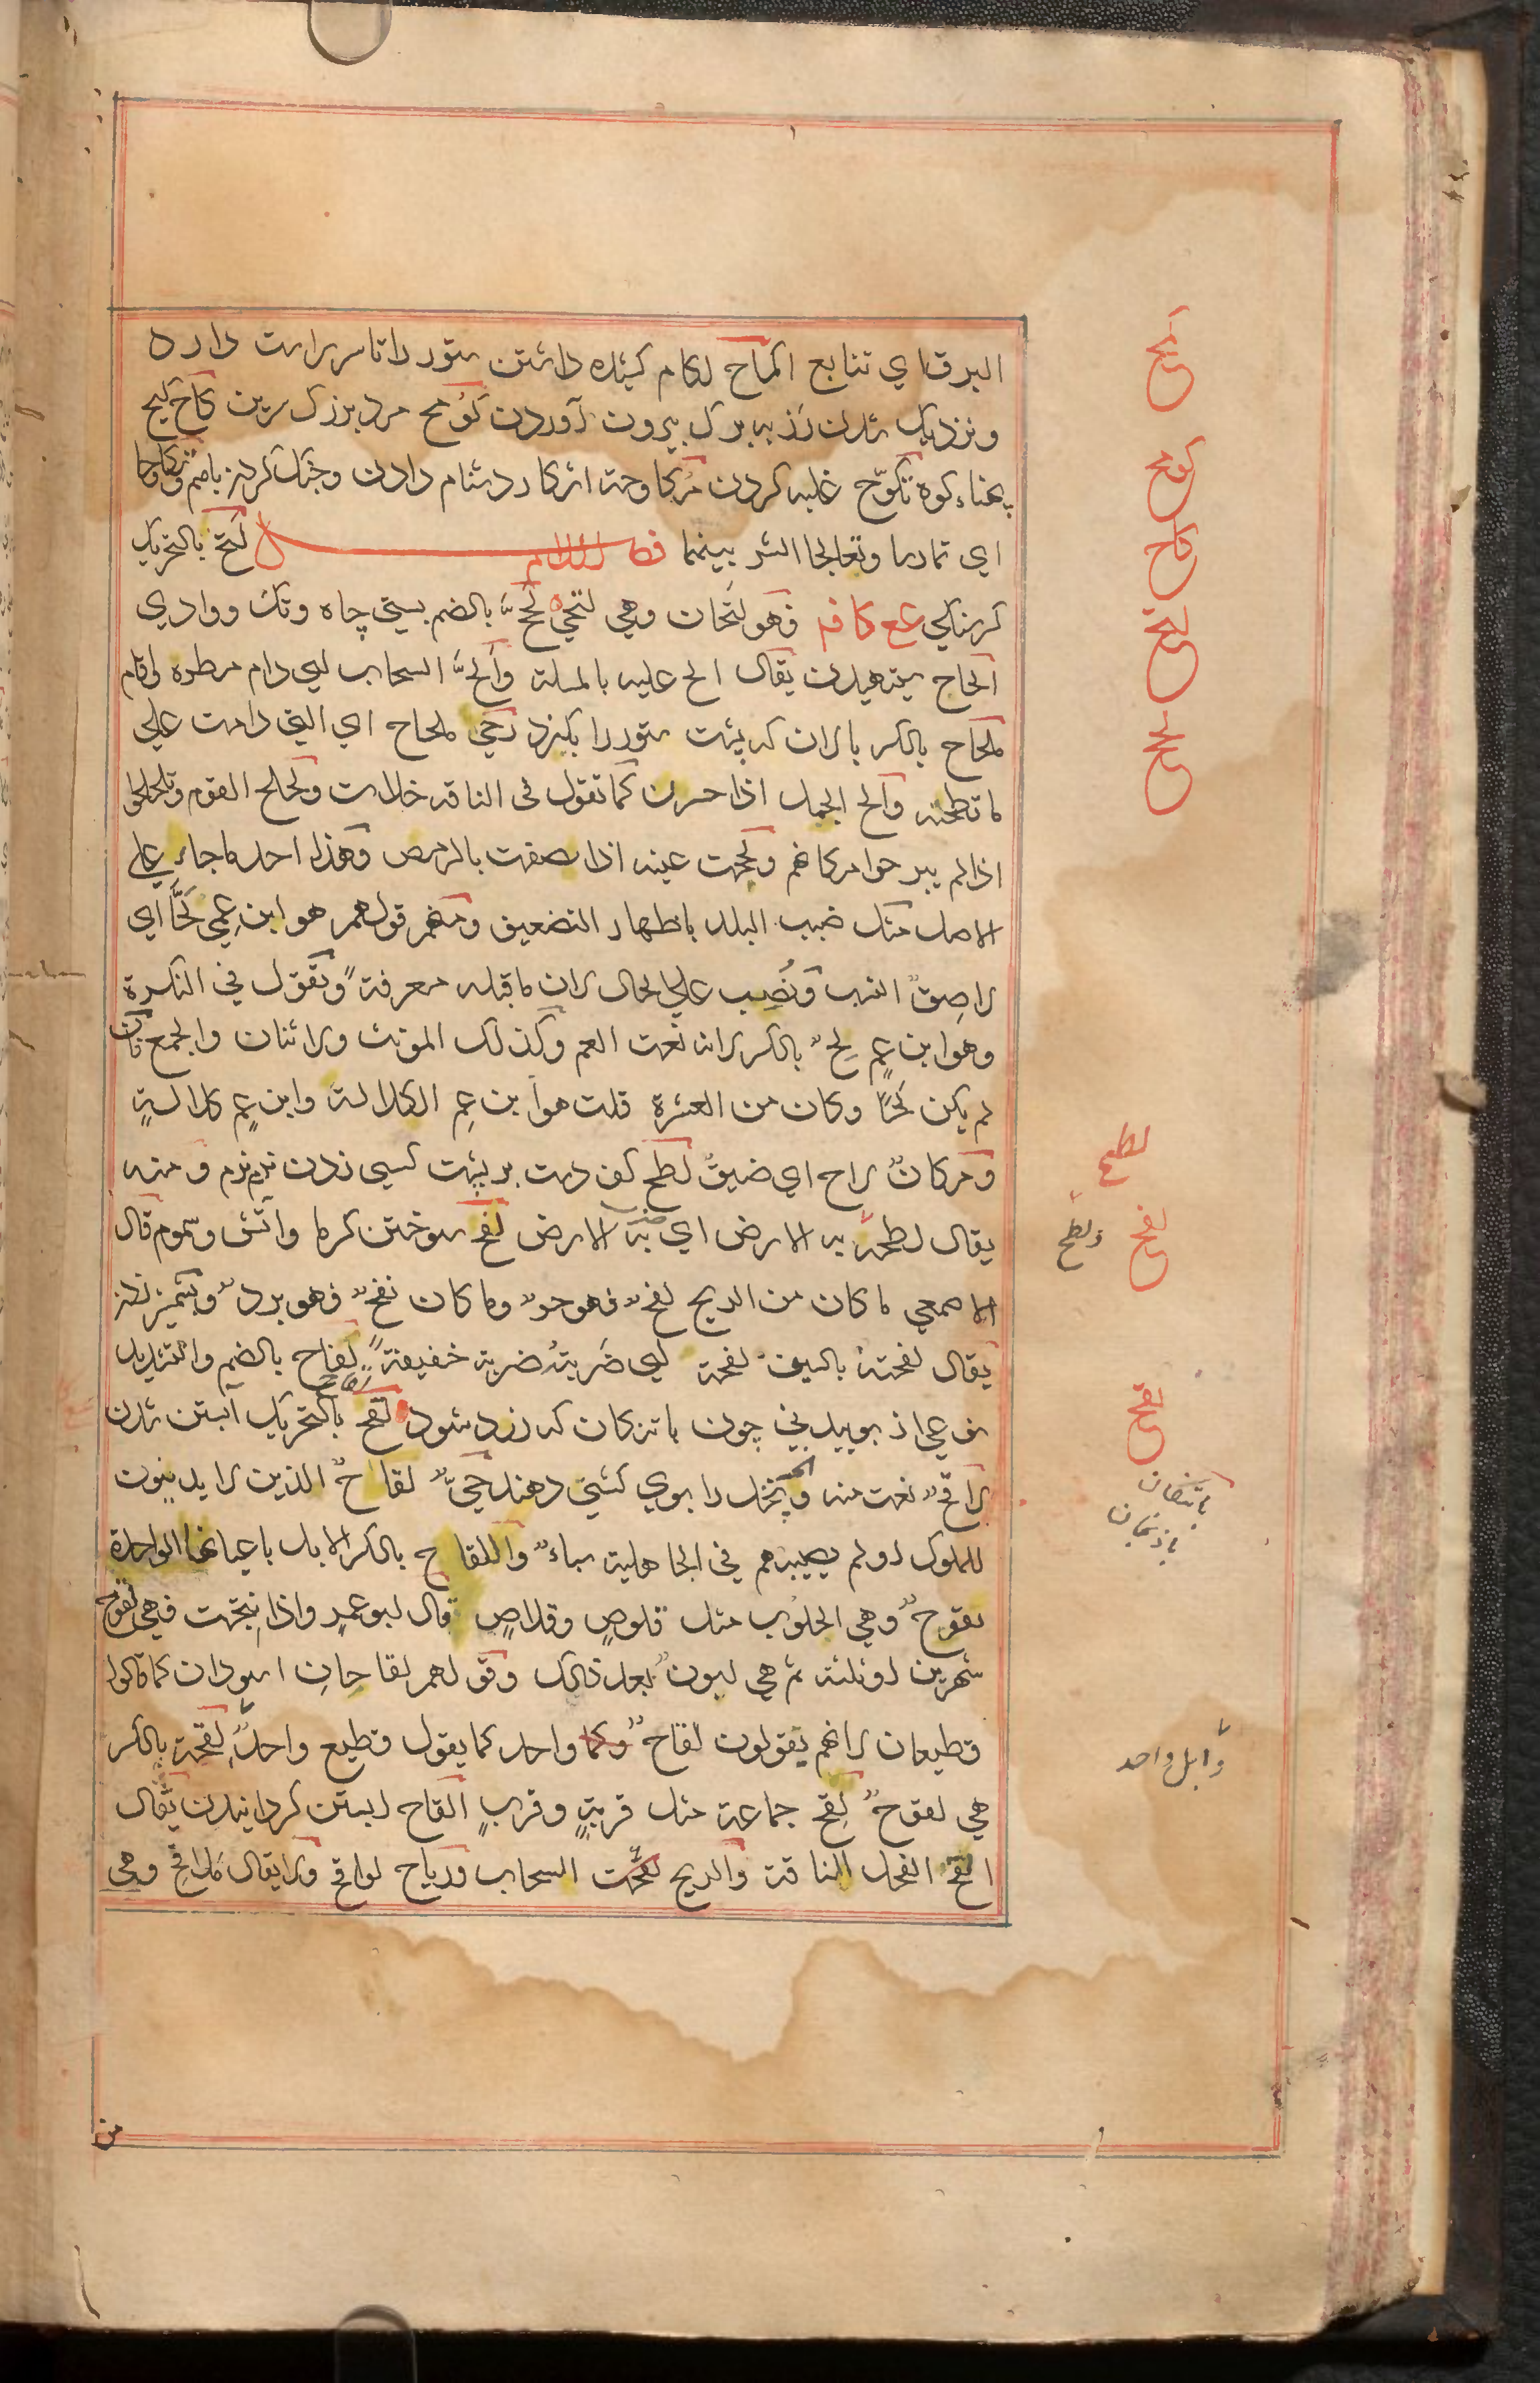 البرق اي تتابع اكماح لكام كشيده داشتن ستور را تا سر راست دارد
ونزديك شدن رز به برك بيرون آوردن كومح مرد بزرك سرين كاح كيح
پهناء كوه تكوّح غلبه كردن مكاوحة اشكارا دشنام دادن وجنك كردن باهم وتكاوحا
اي تمارسا وتعالجا الشر بينهما فصل اللام لتح بالتحريك
كرسنكي ع ع كا فه فهو لتحان وهي لتحي لحّ بالضم پستي چاه وتك ووادي
الحاح ستهيدن يقال الح عليه بالمسلة والحّ السحاب اي دام مطره اقام
ملحاح بالكسر پالان كه پشت ستور را بكزد رحي ملحاح اي التي دامت علي
ما تطحنه والح الجمل اذا حرن كما تقول في الناقة خلات ولحلح القوم وتلحلحوا
اذا لم يبرحوا مركانهم ولححت عينه اذا لصقت بالرمص وهذا احد ما جاء علي
الاصل مثل ضبب البلد باظهار التضعيف ومنهم قولهم هو ابن عمي لحًّا اي
لاصق النسب ونصب علي الحال لان ما قبله معرفة وتقول في النكرة
وهو ابن عمٍ لحٍ بالكسر لانه نعت العم وكذلك المونث والاثنان والجمع فان
لم يكن لحًا وكان من العشرة قلت هو ابن عم الكلالة وابن عمٍ كلالةٍ
ومركان لاح اي ضيق لطح كف دست بر پشت كسي زدن نرم نرم ومنه
يقال لطحه به الارض اي ضربه الارض لفح سوختن كرما وآتش وسموم قال
الاصمعي ما كان من الريح لفح فهو حر وما كان نفح فهو برد وشمشير زدن
يقال لفحته بالسيف لفحة اي ضربته ضربة خفيفة لفاح بالضم والتشديد
نوعي از بوييدني چون باتنكان كه زرد شود لقح بالتحريك آبستن شدن
لاقح نعت منه وآنچه نخل را بوي كشني دهند حيّ لقاح الذين لا يدينون
للملوك او لم يصيبهم في الجاهلية سباء واللقاح بالكسر الابل باعيانها الواحدة
لقوح وهي الحلوب مثل قلوص وقلاص قال ابو عمرٍ واذا نتجت فهي لقوح
شهرين او ثلثة ثم هي لبون بعد ذلك وقولهم لقاحان اسودان كما قالوا
قطيعان لانهم يقولون لقاح واحد كما يقول قطيع واحد لقحة بالكسر
هي لقوح لقح جماعة مثل قربة وقرب القاح ابستن كردانيدن يقال
القح الفحل الناقة والريح لقحت السحاب ورياح لواقح ولا يقال ملاقح وهي
كمح
كوح
كاح
لتح
لحح
لطح
لفح
ولطح
لقح
باتنكان
باذنجان
وابل واحد
من